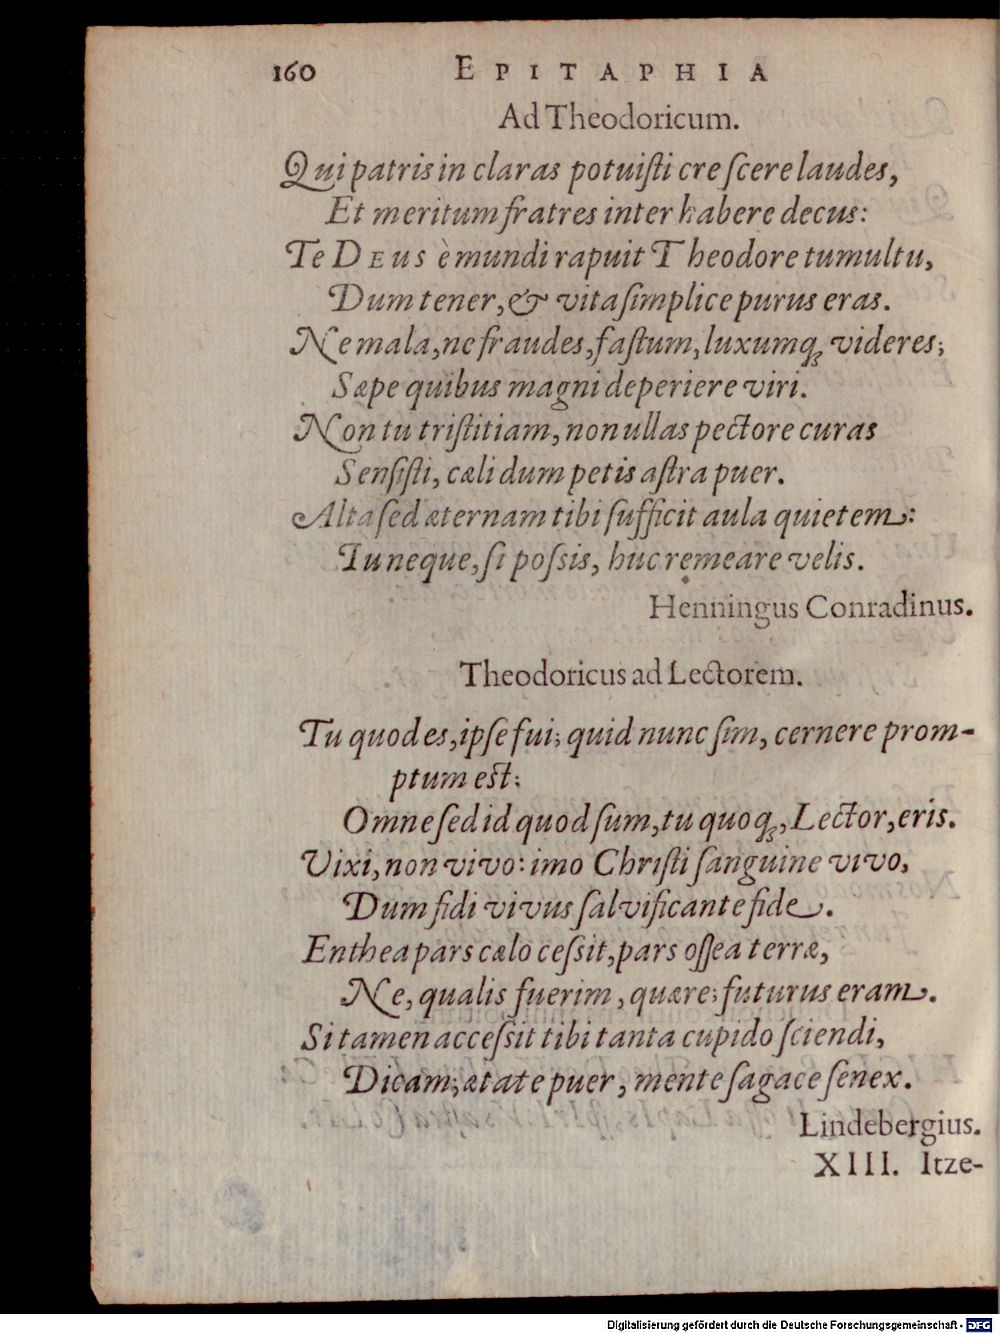 160 EPITAPHIA
Ad Theodoricum.
Qui patris in claras potuiſti creſcere laudes,
Et meritum fratres inter habere decus:
Te DEus è mundi rapuit Theodore tumultu,
Dum tener, & vita ſimplice purus eras.
Ne mala, ne fraudes, faſtum, luxumq; videres;
Sæpe quibus magni deperiere viri.
Non tu triſtitiam, non ullas pectore curas
Senſiſti, cæli dum petis aſtra puer.
Alta ſed æternam tibi ſufficit aula quietem:
Tu neque, ſi poſsis, huc remeare velis.
Henningus Conradinus.
Theodoricus ad Lectorem.
Tu quod es, ipſe fui; quid nunc ſim, cernere prom-
ptum est:
Omne ſed id quod ſum, tu quoq;, Lector, eris.
Vixi, non vivo: imo Chriſti ſanguine vivo,
Dum fidi vivus ſalvificante fide.
Enthea pars cælo ceſsit, pars oſſea terræ,
Ne, qualis fuerim, quære; futurus eram.
Si tamen acceſsit tibi tanta cupido ſciendi,
Dicam; ætate puer, mente ſagace ſenex.
Lindebergius.
XIII. Itze-
Digitalisierung gefördert durch die Deutsche Forschungsgemeinschaft - DFG